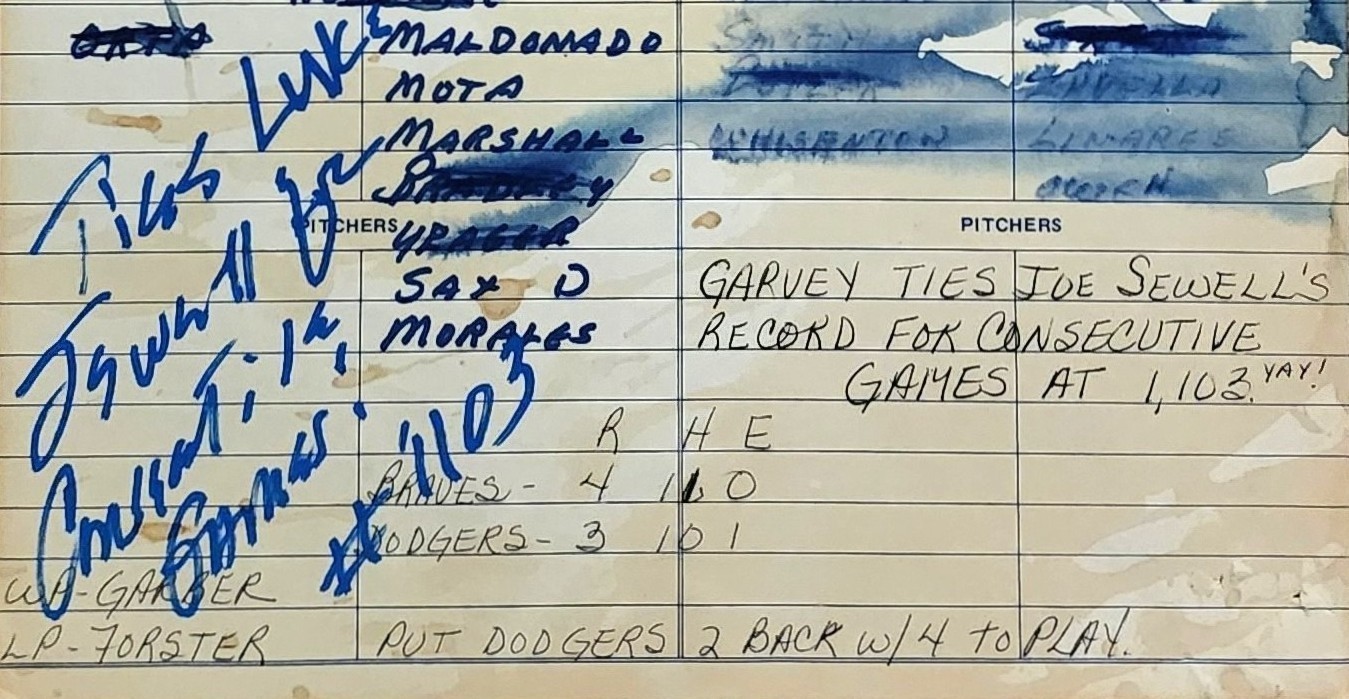 MALDONADO
MOTA
MARSHALL
LINARES
OWEN
PITCHERS
YEAGER
PITCHERS
SAX D
MORALES
GARVEY TIES JOE SEWELL'S
RECORD FOR CONSECUTIVE
GAMES AT 1,103. YAY!
Ties Luke
Sewell for
Consecutive
Games!
# 1103
R H E
BRAVES - 4 11 0
DODGERS - 3 10 1
WP - GARBER
LP - FORSTER
PUT DODGERS 2 BACK W/4 TO PLAY.